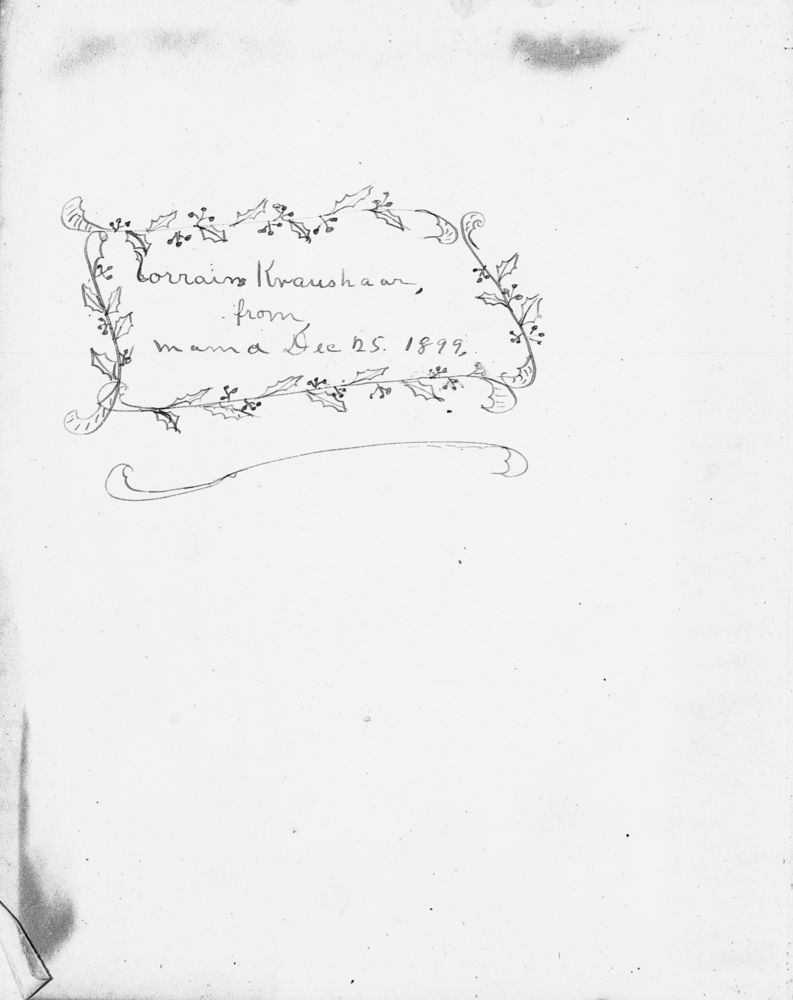 Lorrain Kraushaar,
from,
mama Dec 25. 1899,